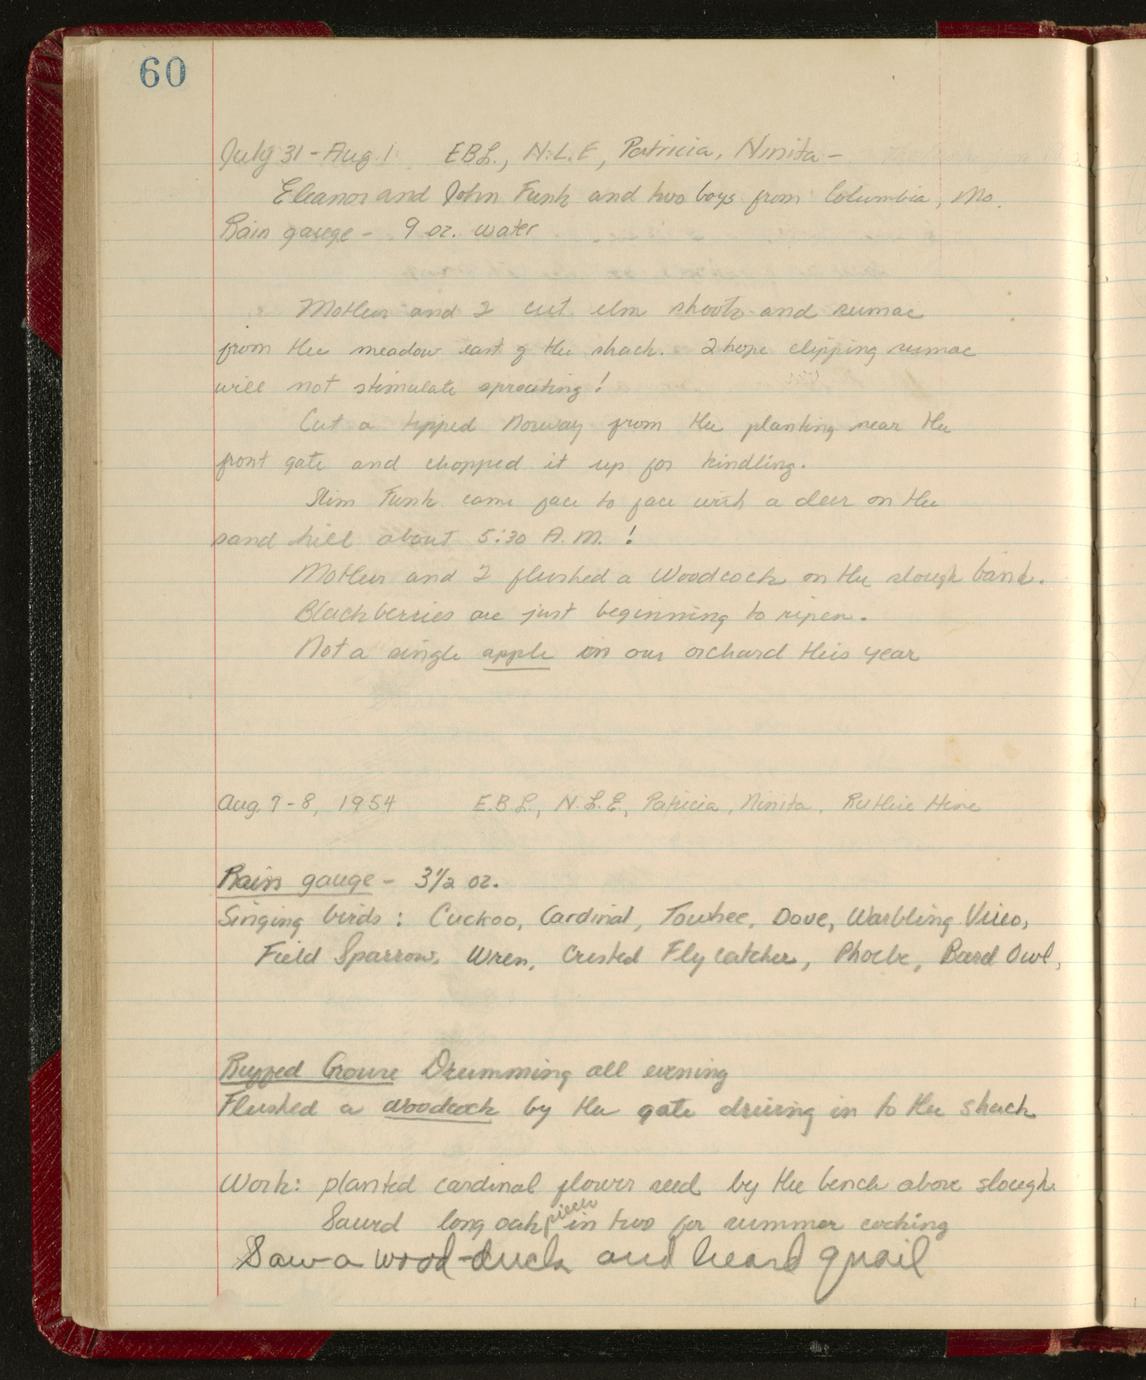 60
July 31 - Aug. 1 EBL., N.L.E, Patricia, Ninita -
Eleanor and John Funk and two boys from Columbia, Mo.
Rain gauge - 9 oz. water
Mother and I cut elm shoots and sumac
from the meadow east of the shack. I hope clipping sumac
will not stimulate sprouting!
Cut a tipped Norway from the planting near the
front gate and chopped it up for kindling.
Slim Funk came face to face with a deer on the
sand hill about 5:30 A.M. !
Mother and I flushed a Woodcock on the slough bank.
Blackberries are just beginning to ripen.
Not a single apple in our orchard this year
Aug. 7-8, 1954 E.B.L., N.L.E., Patricia, Ninita, Ruthie Hine
Rain gauge - 3 1/2 oz.
Singing birds: Cuckoo, Cardinal, Towhee, Dove, Warbling Vireo,
Field Sparrow, Wren, Crested Flycatcher, Phoebe, Bard Owl,
Ruffed Grouse Drumming all evening
Flushed a woodcock by the gate driving in to the shack
Work: planted cardinal flower seed by the bench above slough
Sawed long oak piece in two for summer cooking
Saw a wood-duck and heard quail